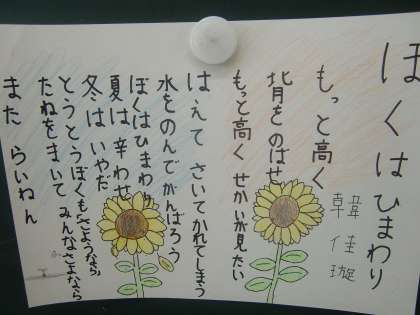 ぼくはひまわり
韓佳璇
もっと高く
背をのばせ
もっと高くせかいが見たい
はえてさいてかれてしまう
水をのんでがんばろう
ぼくはひまわり
夏は幸わせ
冬はいやだ
とうとうぼくも「さようなら」
たねをまいてみんなさよなら
またらいねん